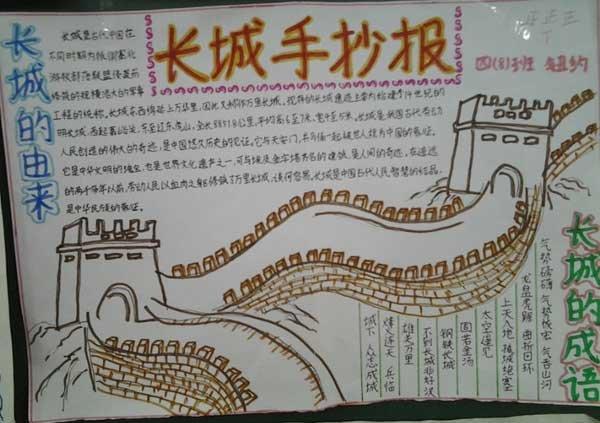 长城手抄报
四(8)班
长城的由来
长城是古代中国在
不同时期为抵御塞北
游牧部落联盟侵袭而
修筑的规模浩大的军事
工程的统称。长城东西绵延上万华里，因此又称作万里长城。现存的长城遗迹主要为始建于14世纪的
明长城，西起嘉峪关，东至辽东虎山，全长8851.8公里，平均高6至7米，宽4至5米。长城是我国古代劳动
人民创造的伟大的奇迹，是中国悠久历史的见证。它与天安门，兵马俑一起被世人视为中国的象征。
它是中华文明的瑰宝，也是世界文化遗产之一，可与埃及金字塔齐名的建筑，是人间的奇迹。在遥远
的两千多年以前，劳动人民以血肉之躯修筑了万里长城。长城是中国古代人民智慧的结晶，
是中华民族的象征。
长城的成语
气势磅礴 气势恢宏 气吞山河
龙盘虎踞 曲折回环
上天入地 被城绝塞
太空遥见
固若金汤
钢铁长城
不到长城非好汉
雄关万里
烽火连天 兵临
城下 众志成城